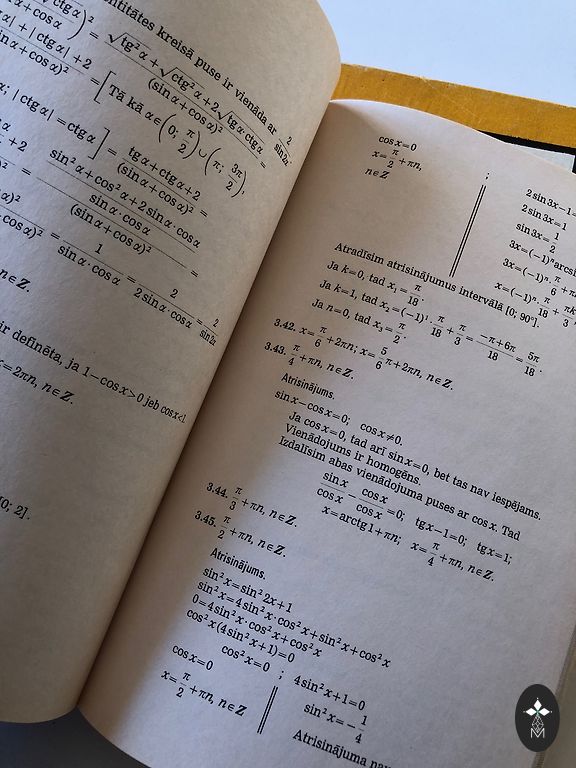 ntitātes kreisā puse ir vienāda ar 2/sin2α.
√ctg α)² = √tg²α + √ctg²α + 2√tg α ctg α / (sin α + cos α)² =
α| + |ctg α| + 2 / (sin α + cos α)² = [Tā kā α ∈ (0; π/2) ∪ (π; 3π/2),
α; |ctg α| = ctg α] = tg α + ctg α + 2 / (sin α + cos α)² =
sin²α + cos²α + 2 sin α · cos α / sin α · cos α / (sin α + cos α)² =
1 / sin α · cos α = 2 / 2 sin α · cos α = 2 / sin 2α
n ∈ Z.
ir definēta, ja 1 − cos x > 0 jeb cos x < 1.
x = 2πn, n ∈ Z.
0; 2].
cos x = 0
x = π/2 + πn,
n ∈ Z
2 sin 3x − 1 =
2 sin 3x = 1
sin 3x = 1/2
3x = (−1)ⁿ arcsi
3x = (−1)ⁿ · π/6 + π
x = (−1)ⁿ · π/18 + πk/3
Atradīsim atrisinājumus intervālā [0; 90°].
Ja k = 0, tad x₁ = π/18.
Ja k = 1, tad x₂ = (−1)¹ · π/18 + π/3 = −π + 6π/18 = 5π/18.
Ja n = 0, tad x₃ = π/2.
3.42. x = π/6 + 2πn; x = 5/6 π + 2πn, n ∈ Z.
3.43. π/4 + πn, n ∈ Z.
Atrisinājums.
sin x − cos x = 0; cos x ≠ 0.
Ja cos x = 0, tad arī sin x = 0, bet tas nav iespējams.
Vienādojums ir homogēns.
Izdalīsim abas vienādojuma puses ar cos x. Tad
sin x/cos x − cos x/cos x = 0; tg x − 1 = 0; tg x = 1;
x = arctg 1 + πn; x = π/4 + πn, n ∈ Z.
3.44. π/3 + πn, n ∈ Z.
3.45. π/2 + πn, n ∈ Z.
Atrisinājums.
sin²x = sin²2x + 1
sin²x = 4 sin²x · cos²x + sin²x + cos²x
0 = 4 sin²x · cos²x + cos²x
cos²x(4 sin²x + 1) = 0
cos²x = 0 ; 4 sin²x + 1 = 0
cos x = 0
sin²x = −1/4
x = π/2 + πn, n ∈ Z
Atrisinājuma nav
M